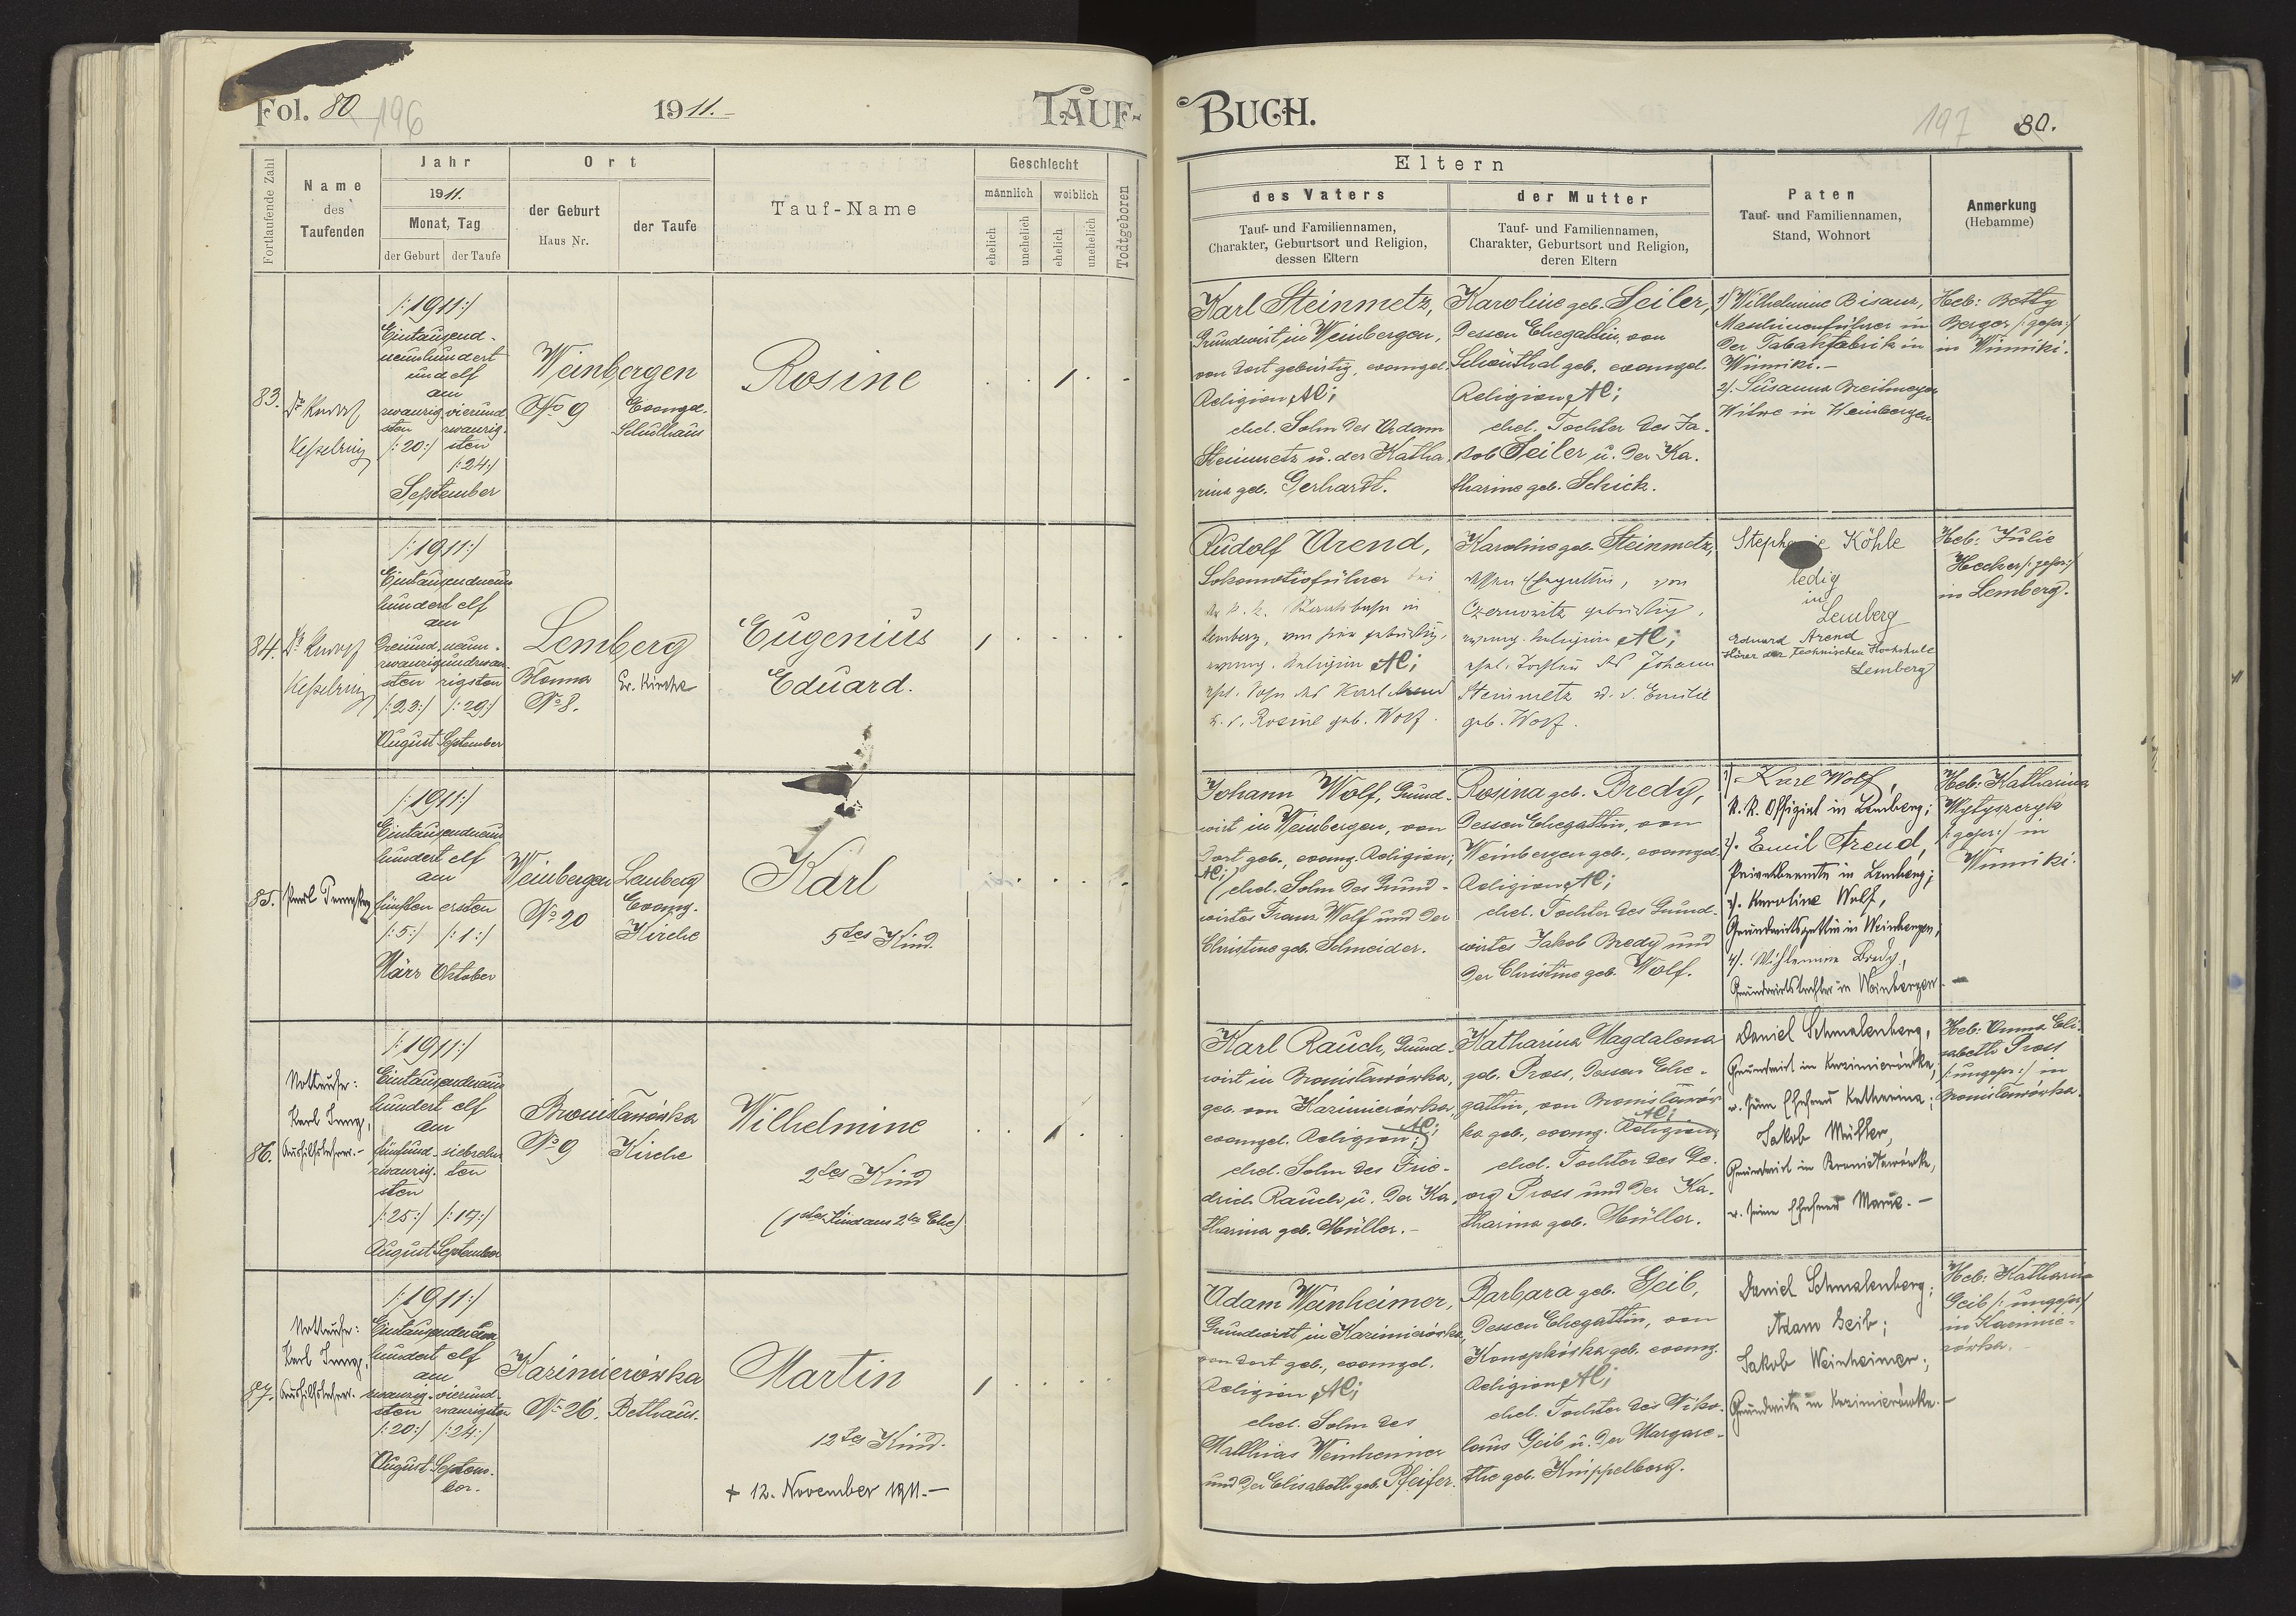 Fol. 80 196
1911.
TAUF-
Fortlaufende Zahl
Name
des
Taufenden
Jahr
1911.
Monat, Tag
der Geburt
der Taufe
Ort
der Geburt
Haus Nr.
der Taufe
Tauf-Name
Geschlecht
männlich
weiblich
ehelich
unehelich
ehelich
unehelich
Todtgeboren
83.
Dr
Kesselring
/:1911:/
Eintausend-
neunhundert
und elf
am
zwanzig-
sten
/:20:/
vierund
zwanzig-
sten
/:24:/
September
Weinbergen
No 9
Evangel.
Schulhaus
Rosine
84.
Dr
Kesselring
/:1911:/
Eintausendneun
hundert elf
am
dreiund
zwanzig
sten
/:23:/
August
neun-
undzwan-
zigsten
/:29:/
September
Lemberg
No 8.
Ev. Kirche
Eugenius
Eduard.
85.
/:1911:/
Eintausendneun
hundert elf
am
fünften
/:5:/
März
ersten
/:1:/
Oktober
Weinbergen
No 20
Lemberg
Evang.
Kirche
Karl
5tes Kind.
86.
Nottaufe:
Karl Jung,
Aushilfslehrer.-
/:1911:/
Eintausendneun
hundert elf
am
fünfund
zwanzig-
sten
/:25:/
August
siebzehn
ten
/:17:/
September
Bronisławówka
No 9
Kirche
Wilhelmine
2tes Kind
(1stes Kind aus 2ter Ehe)
87.
Nottaufe:
Karl Jung,
Aushilfslehrer.
/:1911:/
Eintausendneun
hundert elf
am
zwanzig-
sten
/:20:/
August
vierund-
zwanzigsten
/:24:/
Septem-
ber.
Kazimierówka
No 26.
Bethaus.
Martin
12tes Kind.
+ 12. November 1911.-
BUCH.
197 80.
Eltern
des Vaters
Tauf- und Familiennamen,
Charakter, Geburtsort und Religion,
dessen Eltern
der Mutter
Tauf- und Familiennamen,
Charakter, Geburtsort und Religion,
deren Eltern
Paten
Tauf- und Familiennamen,
Stand, Wohnort
Anmerkung
(Hebamme)
Karl Steinmetz,
Grundwirt in Weinbergen,
von dort gebürtig, evangel.
Religion AC;
ehel. Sohn des Adam
Steinmetz u. der Katha-
rina geb. Gerhardt.
Karoline geb. Seiler,
dessen Ehegattin, von
Schönthal geb. evangel.
Religion AC;
ehel. Tochter des Ja-
kob Seiler u. der Ka-
tharina geb. Schick.
1) Wilhelmine Bisanz,
Maschinenführer in
der Tabakfabrik in
Winniki.-
2). Susanna Breitmeyer
Witwe in Weinbergen
Heb: Betty
Berger /:gepr:/
in Winniki.
Rudolf Arend,
Lokomotivführer bei
der k. k. Staatsbahn in
Lemberg, von hier gebürtig,
evang. Religion AC;
ehel. Sohn des Karl Arend
u. d. Rosine geb. Wolf.
Karoline geb. Steinmetz,
dessen Ehegattin, von
Czernowitz gebürtig,
evang. Religion AC;
ehel. Tochter des Johann
Steinmetz u. d. Emilie
geb. Wolf.
Köhle
ledig
in
Lemberg
Eduard Arend
Hörer der technischen Hochschule
Lemberg
Heb: Julie
Hecker /:gepr:/
in Lemberg.
Johann Wolf, Grund-
wirt in Weinbergen, von
dort geb., evang. Religion;
AC;
ehel. Sohn des Grund-
wirtes Franz Wolf und der
Christine geb. Schneider.
Rosina geb. Bredy,
dessen Ehegattin, von
Weinbergen geb., evangel.
Religion AC;
ehel. Tochter des Grund-
wirtes Jakob Bredy und
der Christine geb. Wolf.
1). Karl Wolf,
k. k. Offizial in Lemberg;
2). Emil Arend,
Privatbeamte in Lemberg;
3). Karoline Wolf,
Grundwirtsgattin in Weinbergen;
4). Wihlemine Bredy,
Grundwirtstochter in Weinbergen.-
Heb: Katharina
/:gepr:/ in
Winniki.
Karl Rauch, Grund-
wirt in Bronisławówka,
geb. von Kazimierówka,
evangel. Religion AC;
ehel. Sohn des Frie-
drich Rauch u. der Ka-
tharina geb. Müller.-
Katharina Magdalena
geb. Pross, dessen Ehe-
gattin, von Bronisławów-
ka geb., evang. Religion AC;
ehel. Tochter des Ge-
org Pross und der Ka-
tharina geb. Müller.
Daniel Schmalenberg,
Grundwirt in Kazimierówka,
u. seine Ehefrau Katharina;
Jakob Müller,
Grundwirt in Bronisławówka,
u. seine Ehefrau Marie.-
Heb: Anna Eli-
sabeth Pross
/:ungepr:/ in
Bronisławówka.
Adam Weinheimer,
Grundwirt in Kazimierówka,
von dort geb., evangel.
Religion AC;
ehel. Sohn des
Matthias Weinheimer
und der Elisabeth geb. Pfeifer.
Barbara geb. Geib,
dessen Ehegattin, von
Konopkówka geb. evang.
Religion AC;
ehel. Tochter des Niko-
laus Geib u. der Margare-
the geb. Knippelberg.
Daniel Schmalenberg;
Adam Geib;
Jakob Weinheimer;
Grundwirte in Kazimierówka.-
Heb: Katharina
Geib /:ungepr:/
in Kazimie-
rówka.